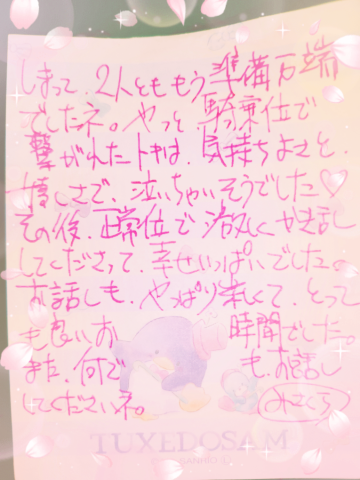 しまって、2人とももう準備万端
でしたネ。やっと、騎乗位で
繋がれたトキは、気持ちよさと、
嬉しさで、泣いちゃいそうでした♡
その後、正常位で激しくかき乱し
してくださって、幸せいっぱいでした。
お話しも、やっぱり楽しくて、とって
も良いお 時間でした。
また、何で も、お話し
してくださいネ。 みさくら
TUXEDOSAM
SANRIO